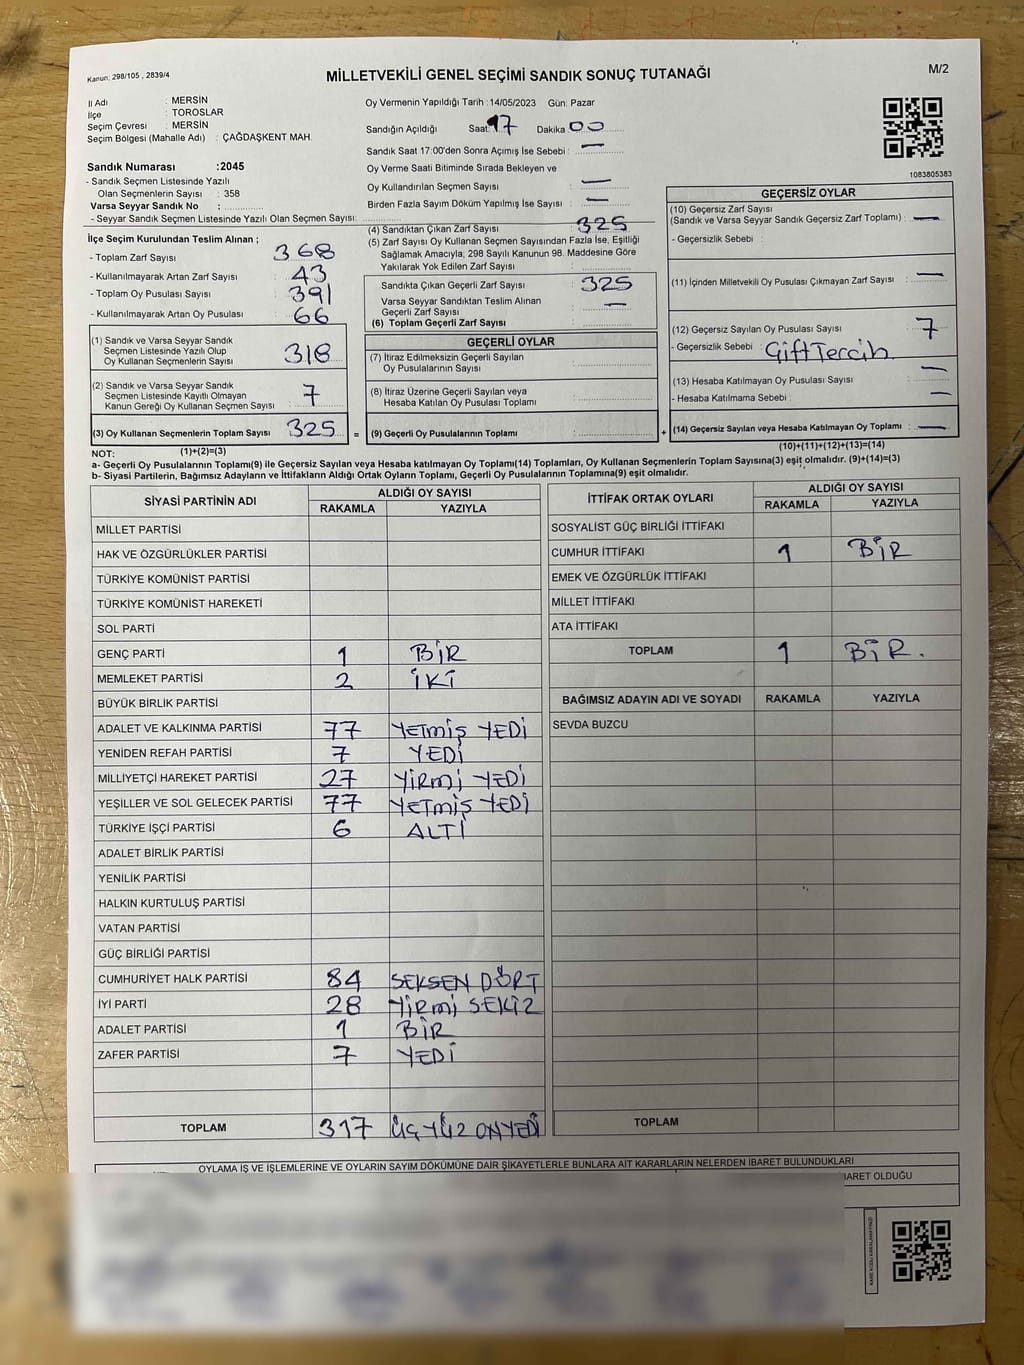 Kanun: 298/105 , 2839/4
MİLLETVEKİLİ GENEL SEÇİMİ SANDIK SONUÇ TUTANAĞI
M/2
İl Adı : MERSİN
İlçe : TOROSLAR
Seçim Çevresi : MERSİN
Seçim Bölgesi (Mahalle Adı) : ÇAĞDAŞKENT MAH.
Sandık Numarası :2045
- Sandık Seçmen Listesinde Yazılı
Olan Seçmenlerin Sayısı : 358
Varsa Seyyar Sandık No :
- Seyyar Sandık Seçmen Listesinde Yazılı Olan Seçmen Sayısı:
İlçe Seçim Kurulundan Teslim Alınan ;
- Toplam Zarf Sayısı : 368
- Kullanılmayarak Artan Zarf Sayısı : 43
- Toplam Oy Pusulası Sayısı : 391
- Kullanılmayarak Artan Oy Pusulası : 66
(1) Sandık ve Varsa Seyyar Sandık
Seçmen Listesinde Yazılı Olup
Oy Kullanan Seçmenlerin Sayısı : 318
(2) Sandık ve Varsa Seyyar Sandık
Seçmen Listesinde Kayıtlı Olmayan
Kanun Gereği Oy Kullanan Seçmen Sayısı : 7
(3) Oy Kullanan Seçmenlerin Toplam Sayısı : 325
Oy Vermenin Yapıldığı Tarih :14/05/2023 Gün: Pazar
Sandığın Açıldığı Saat 17 Dakika 00
Sandık Saat 17:00'den Sonra Açımış İse Sebebi : —
Oy Verme Saati Bitiminde Sırada Bekleyen ve
Oy Kullandırılan Seçmen Sayısı : —
Birden Fazla Sayım Döküm Yapılmış İse Sayısı : —
(4) Sandıktan Çıkan Zarf Sayısı : 325
(5) Zarf Sayısı Oy Kullanan Seçmen Sayısından Fazla İse, Eşitliği
Sağlamak Amacıyla; 298 Sayılı Kanunun 98. Maddesine Göre
Yakılarak Yok Edilen Zarf Sayısı :
Sandıkta Çıkan Geçerli Zarf Sayısı : 325
Varsa Seyyar Sandıktan Teslim Alınan
Geçerli Zarf Sayısı : —
(6) Toplam Geçerli Zarf Sayısı :
GEÇERLİ OYLAR
(7) İtiraz Edilmeksizin Geçerli Sayılan
Oy Pusulalarının Sayısı :
(8) İtiraz Üzerine Geçerli Sayılan veya
Hesaba Katılan Oy Pusulası Toplamı :
= (9) Geçerli Oy Pusulalarının Toplamı :
1083805383
GEÇERSİZ OYLAR
(10) Geçersiz Zarf Sayısı
(Sandık ve Varsa Seyyar Sandık Geçersiz Zarf Toplamı) : —
- Geçersizlik Sebebi :
(11) İçinden Milletvekili Oy Pusulası Çıkmayan Zarf Sayısı : —
(12) Geçersiz Sayılan Oy Pusulası Sayısı : 7
- Geçersizlik Sebebi : Çift Tercih
(13) Hesaba Katılmayan Oy Pusulası Sayısı : —
- Hesaba Katılmama Sebebi : —
+ (14) Geçersiz Sayılan veya Hesaba Katılmayan Oy Toplamı : —
NOT: (1)+(2)=(3)
(10)+(11)+(12)+(13)=(14)
a- Geçerli Oy Pusulalarının Toplamı(9) ile Geçersiz Sayılan veya Hesaba katılmayan Oy Toplamı(14) Toplamları, Oy Kullanan Seçmenlerin Toplam Sayısına(3) eşit olmalıdır. (9)+(14)=(3)
b- Siyasi Partilerin, Bağımsız Adayların ve İttifakların Aldığı Ortak Oyların Toplamı, Geçerli Oy Pusulalarının Toplamına(9) eşit olmalıdır.
SİYASİ PARTİNİN ADI ALDIĞI OY SAYISI
RAKAMLA YAZIYLA
MİLLET PARTİSİ
HAK VE ÖZGÜRLÜKLER PARTİSİ
TÜRKİYE KOMÜNİST PARTİSİ
TÜRKİYE KOMÜNİST HAREKETİ
SOL PARTİ
GENÇ PARTİ 1 BİR
MEMLEKET PARTİSİ 2 İKİ
BÜYÜK BİRLİK PARTİSİ
ADALET VE KALKINMA PARTİSİ 77 YETMİŞ YEDİ
YENİDEN REFAH PARTİSİ 7 YEDİ
MİLLİYETÇİ HAREKET PARTİSİ 27 YİRMİ YEDİ
YEŞİLLER VE SOL GELECEK PARTİSİ 77 YETMİŞ YEDİ
TÜRKİYE İŞÇİ PARTİSİ 6 ALTI
ADALET BİRLİK PARTİSİ
YENİLİK PARTİSİ
HALKIN KURTULUŞ PARTİSİ
VATAN PARTİSİ
GÜÇ BİRLİĞİ PARTİSİ
CUMHURİYET HALK PARTİSİ 84 SEKSEN DÖRT
İYİ PARTİ 28 YİRMİ SEKİZ
ADALET PARTİSİ 1 BİR
ZAFER PARTİSİ 7 YEDİ
TOPLAM 317 ÜÇ YÜZ ONYEDİ
İTTİFAK ORTAK OYLARI ALDIĞI OY SAYISI
RAKAMLA YAZIYLA
SOSYALİST GÜÇ BİRLİĞİ İTTİFAKI
CUMHUR İTTİFAKI 1 BİR
EMEK VE ÖZGÜRLÜK İTTİFAKI
MİLLET İTTİFAKI
ATA İTTİFAKI
TOPLAM 1 BİR.
BAĞIMSIZ ADAYIN ADI VE SOYADI RAKAMLA YAZIYLA
SEVDA BUZCU
TOPLAM
OYLAMA İŞ VE İŞLEMLERİNE VE OYLARIN SAYIM DÖKÜMÜNE DAİR ŞİKAYETLERLE BUNLARA AİT KARARLARIN NELERDEN İBARET BULUNDUKLARI
İBARET OLDUĞU